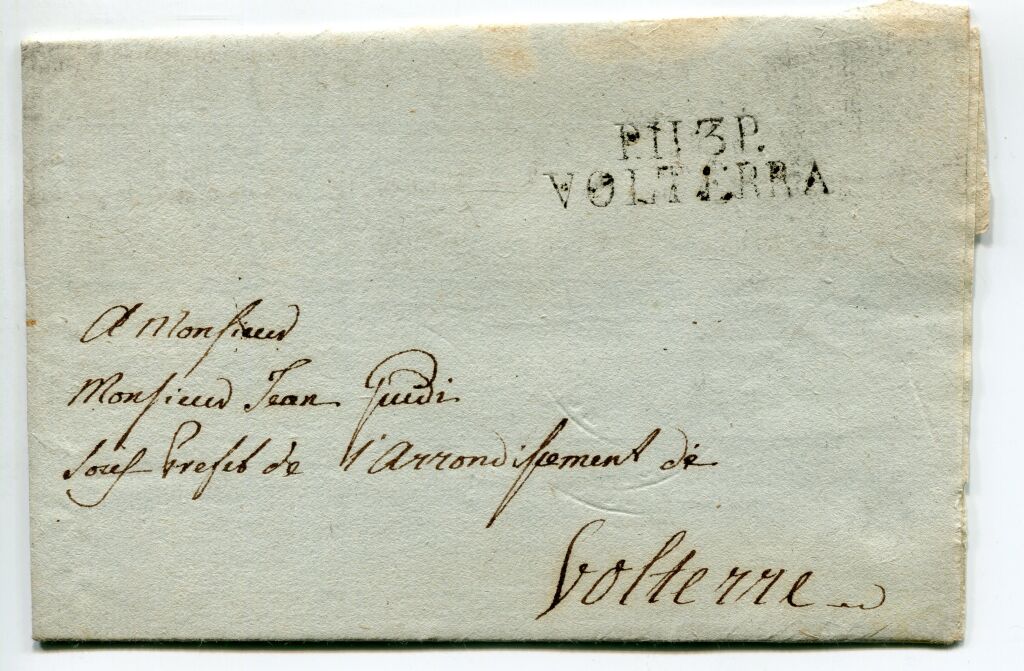 P.113P.
VOLTERRA
A Monsieur
Monsieur Jean Guidi
Sous Prefet de l'Arrondissement de
Volterre